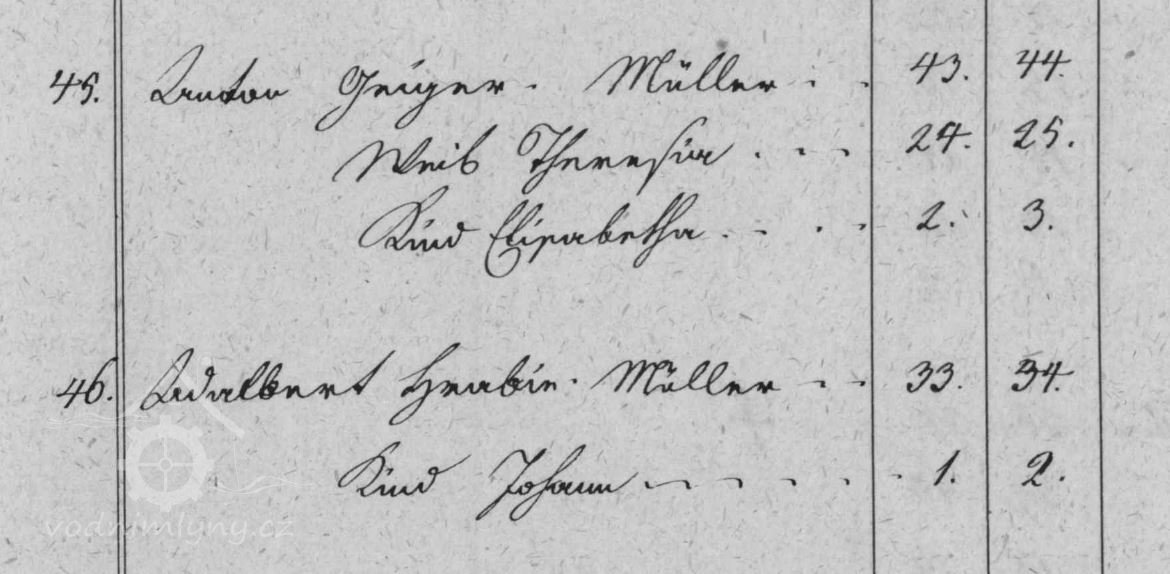 45. Anton Geiger. Müller . . 43. 44.
Weib Theresia . . . 24. 25.
Kind Elisabetha . . . . 2. 3.
46. Adalbert Hrabie. Müller . . 33. 34.
Kind Johann . . . . . . 1. 2.
vodnimlyny.cz